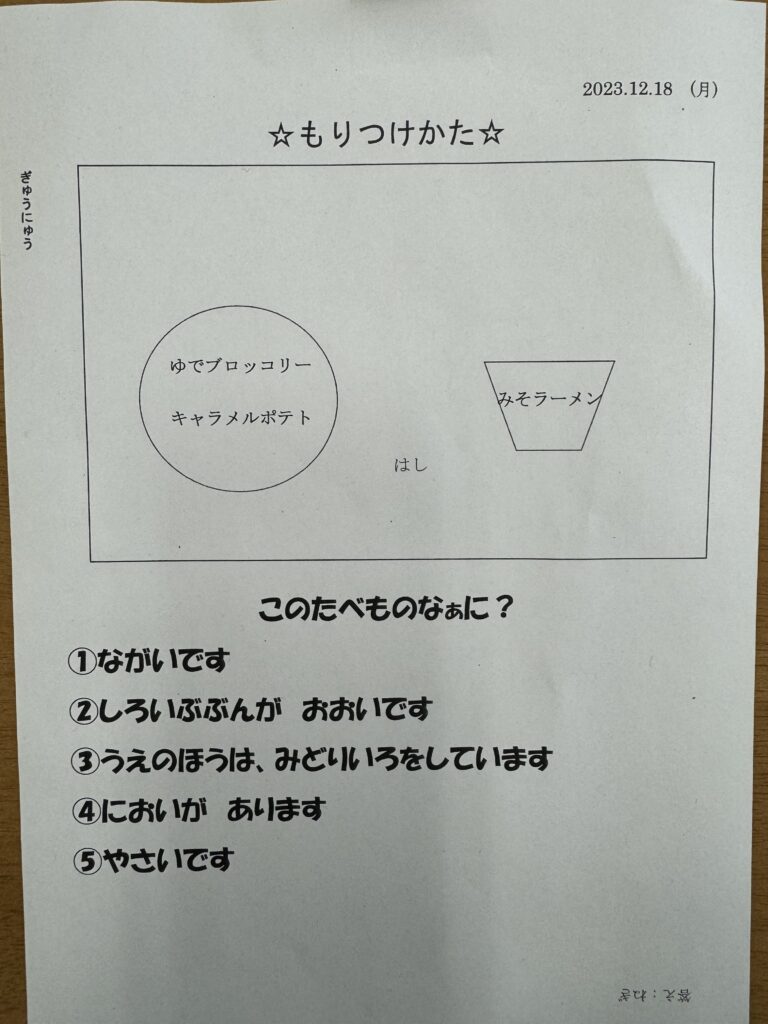 2023.12.18　(月)
☆もりつけかた☆
ぎゅうにゅう
ゆでブロッコリー
キャラメルポテト
みそラーメン
はし
このたべものなぁに？
①ながいです
②しろいぶぶんが　おおいです
③うえのほうは、みどりいろをしています
④においが　あります
⑤やさいです
答え：ねぎ